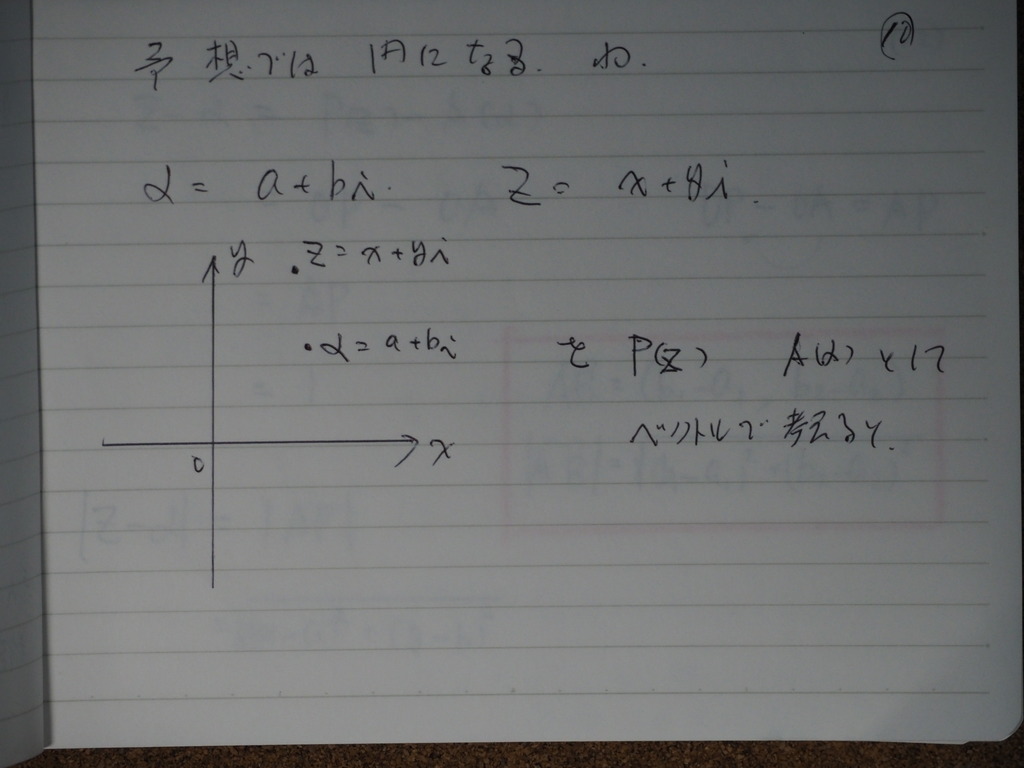 予想では 円になる. わ.
⑩
α = a + bi. z = x + yi.
y
・z = x + yi
・α = a + bi を P(z) A(α) として
ベクトルで考えると.
0
x